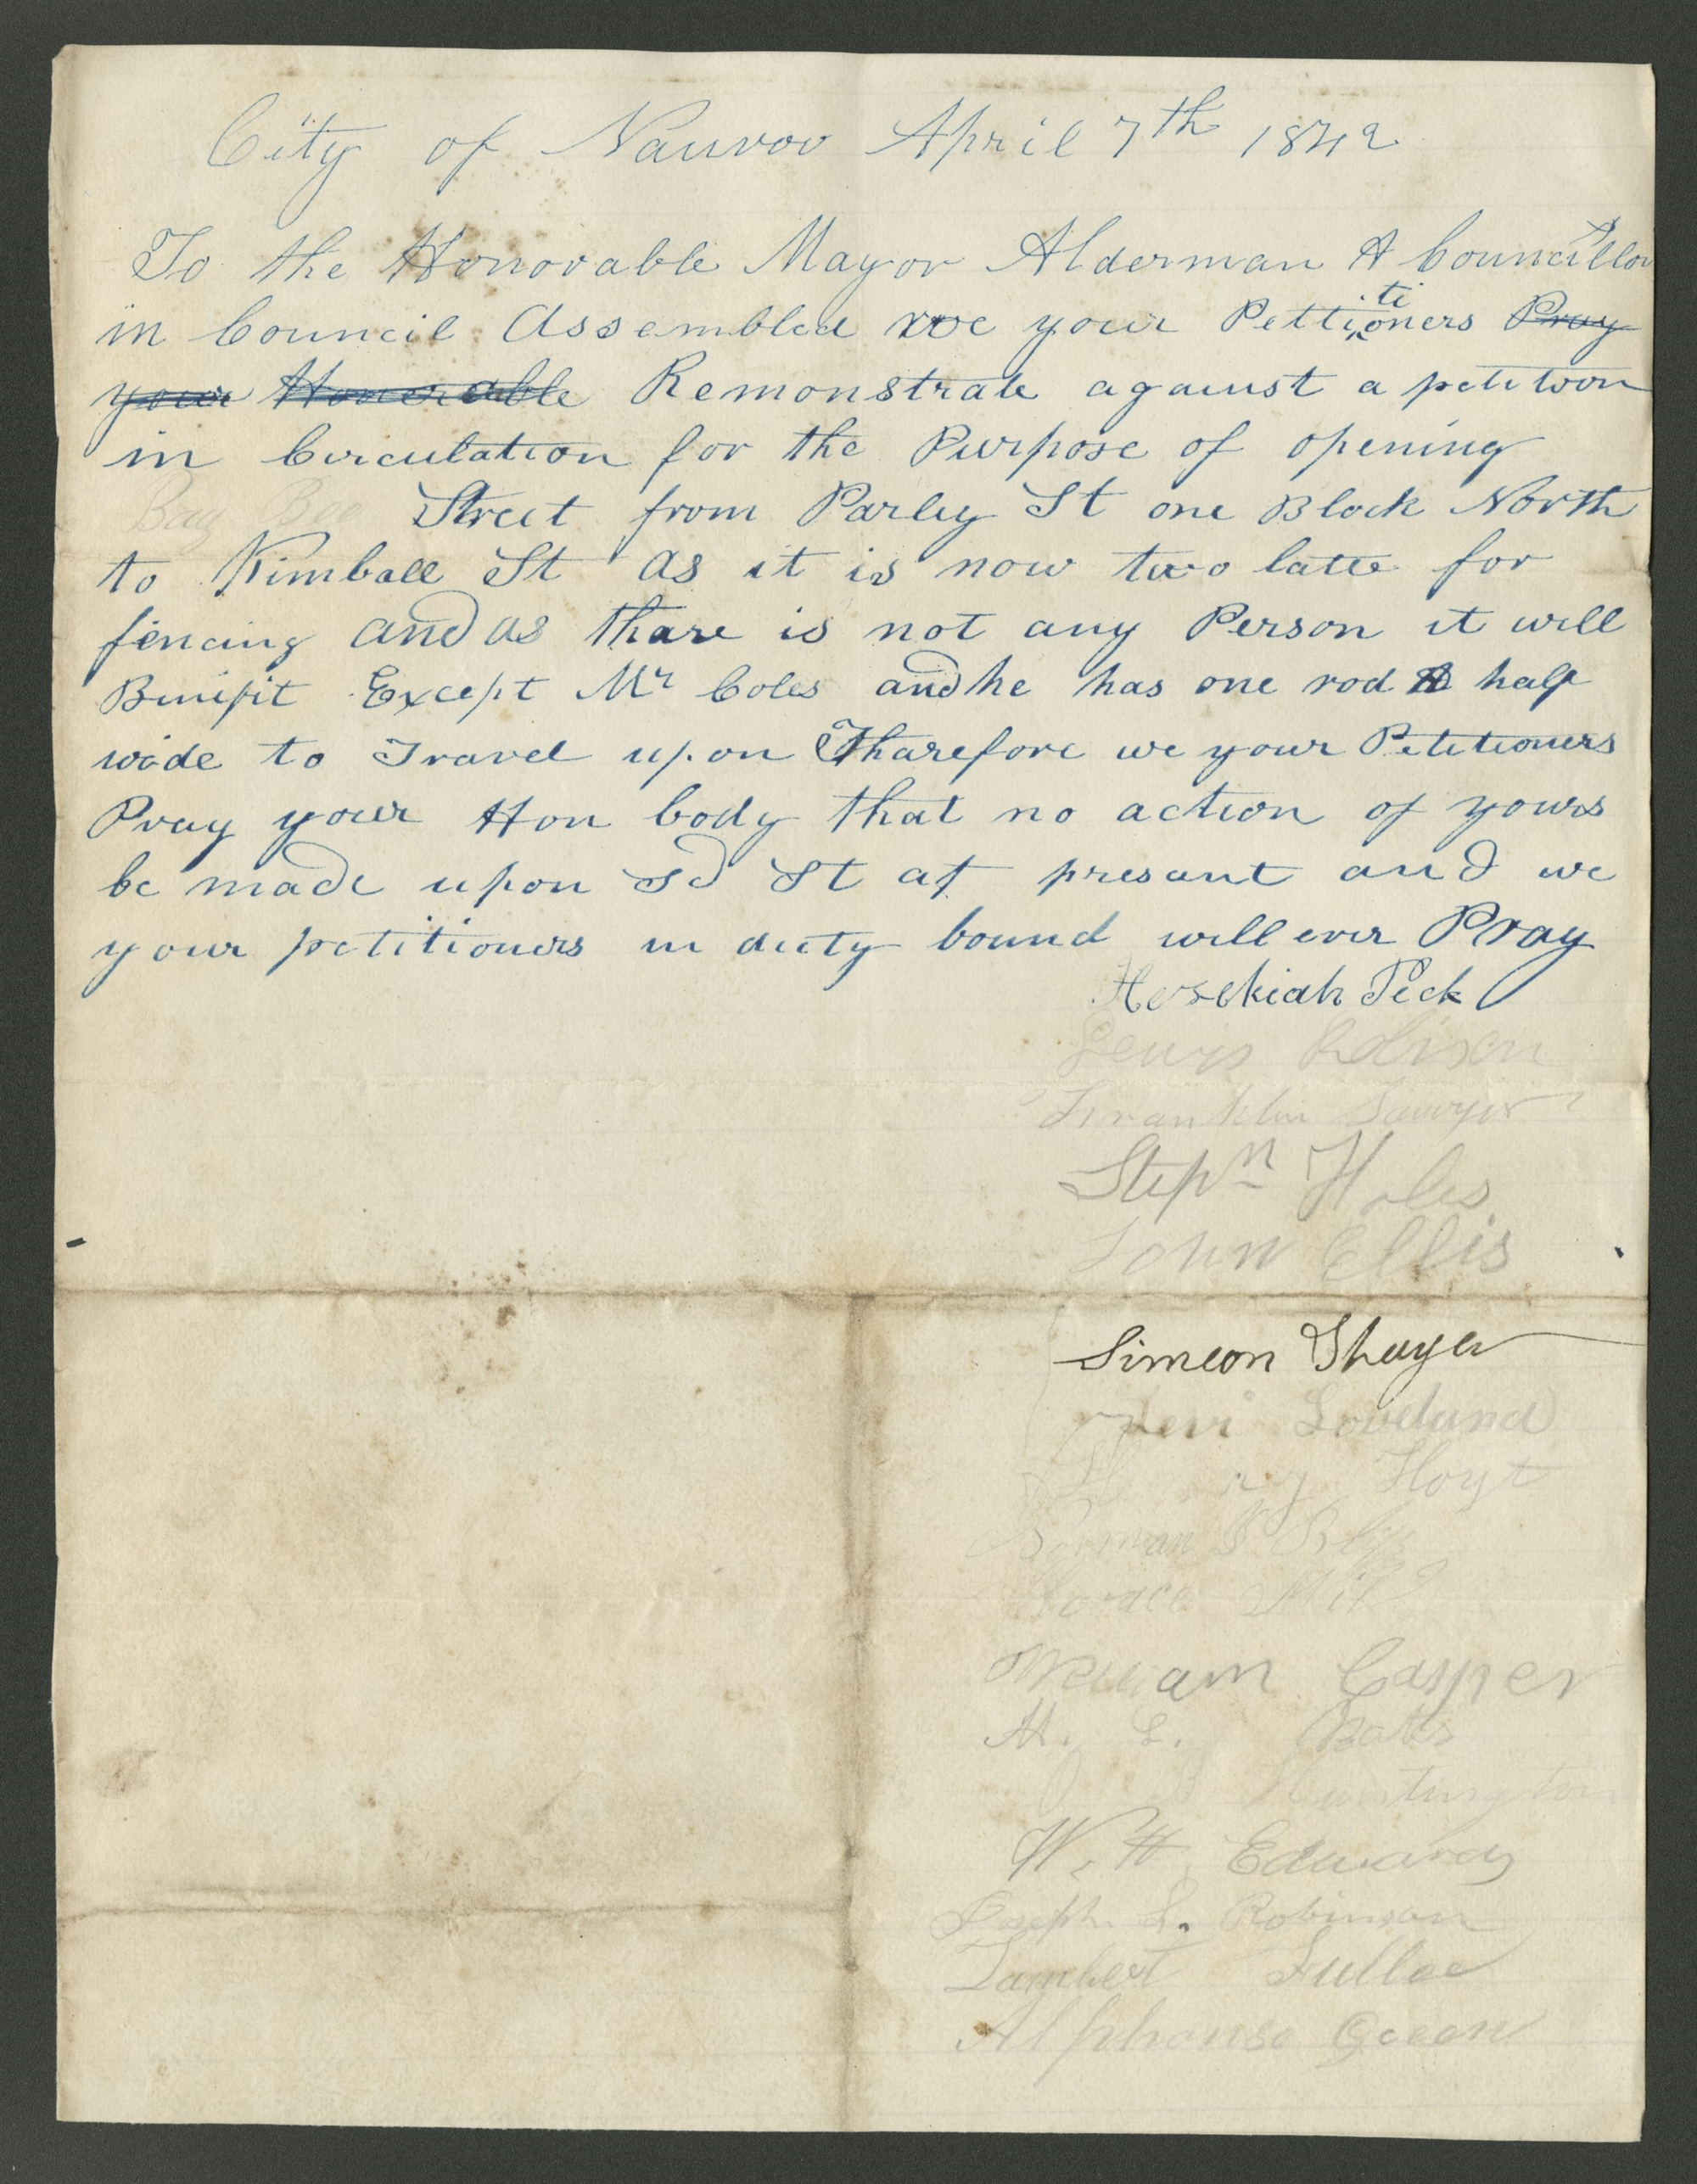 City of Nauvoo April 7th 1842
To the Honorable Mayor Alderman & Councillors
in Council Assembled we your Pettitioners Pray
your Honerable Remonstrate against a petition
in Circulation for the Purpose of opening
Street from Parley St one Block North
to Kimball St as it is now two latte for
fencing and as thare is not any Person it will
Benifit Except Mr Coles and he has one rod & half
wide to Travel upon Tharefore we your Petitioners
Pray your Hon body that no action of yours
be made upon sd St at present and we
your petitioners in duty bound will ever Pray
Hesekiah Peck
Franklin Sawyer
Stepn Hales
John Ellis
Simeon Thayer
Levi Loveland
Hoyt
William Casper
H. L. Bates
Huntington
W. H. Edwards
Joseph L. Robinson
Lambert
Alphonso Green